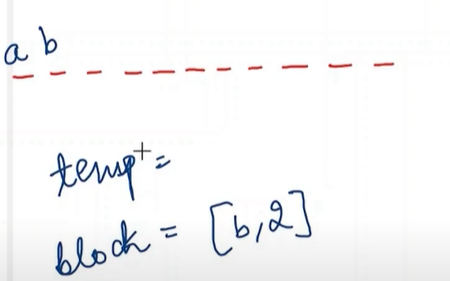 a b
temp =
block = [b,2]